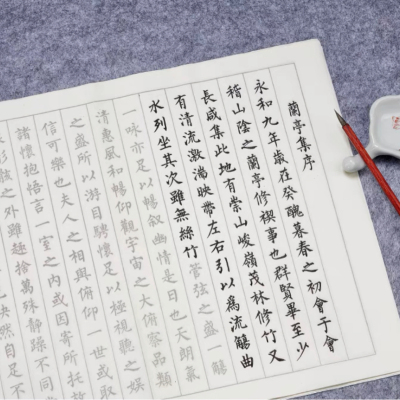 蘭亭集序
永和九年歲在癸醜暮春之初會于會
稽山陰之蘭亭修禊事也群賢畢至少
長咸集此地有崇山峻嶺茂林修竹又
有清流激湍映帶左右引以爲流觴曲
水列坐其次雖無絲竹管弦之盛一觴
一咏亦足以暢敘幽情是日也天朗氣
清惠風和暢仰觀宇宙之大俯察品類
之盛所以游目騁懷足以極視聽之娛
信可樂也夫人之相與俯仰一世或取
諸懷抱悟言一室之內或因寄所托
形骸之外雖趣捨萬殊靜躁不同
快然自足不